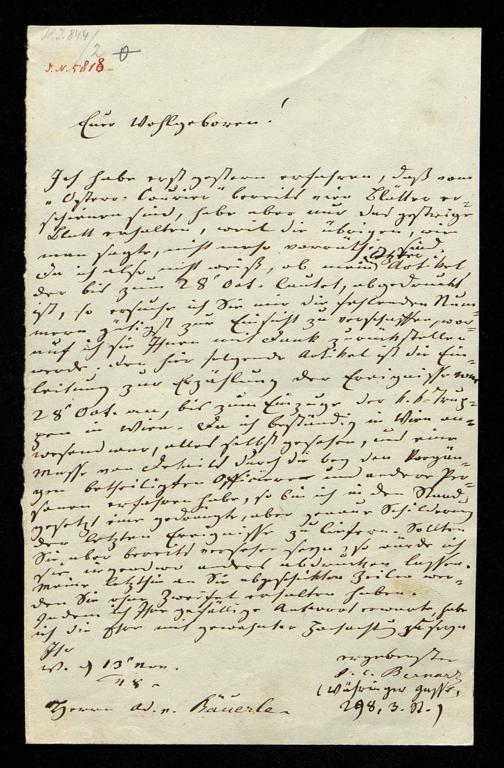 H.I. 844/2
J.N. 5818
Euer Wohlgeboren!
Ich habe erst gestern erfahren, daß vom
"Österr. Courier" bereits vier Blätter er-
schienen sind, habe aber nur das gestrige
Blatt erhalten, weil die übrigen, wie
man sagte, nicht mehr vorräthig sind.
Da ich also nicht weiß, ob mein Artikel
der bis zum 28t Oct. lautet, abgedruckt
ist, so ersuche ich Sie mir die fehlenden Num-
mern gütigst zur Einsicht zu verschaffen, wor-
auf ich sie Ihnen mit Dank zurückstellen
werde. Der hier folgende Artikel ist die Ein-
leitung zur Erzählung der Ereignisse vom
28t Oct. an, bis zum Einzuge der k. k. Trup-
pen in Wien. Da ich beständig in Wien an-
wesend war, alles selbst gesehen, und eine
Masse von Details durch die bey den Vorgän-
gen betheiligten Officiere und andere Per-
sonen erfahren habe, so bin ich in den Stand
gesetzt eine gedrängte, aber genaue Schilderung
der letzten Ereignisse zu liefern. Sollten
Sie aber bereits versehen seyn, so würde ich
sie irgendwo anders abdrucken lassen.
Meine letzthin an Sie abgeschickten Zeilen wer-
den Sie ohne Zweifel erhalten haben.
Indem ich Ihre gefällige Antwort erwarte, habe
ich die Ehre mit gewohnter Hochachtung zu seyn
Ihr
W. d 13t Nov.
/48
ergebenster
J. C. Bernard
(Währinger Gasse,
298, 3. St.)
Herrn Ad. v. Bäuerle